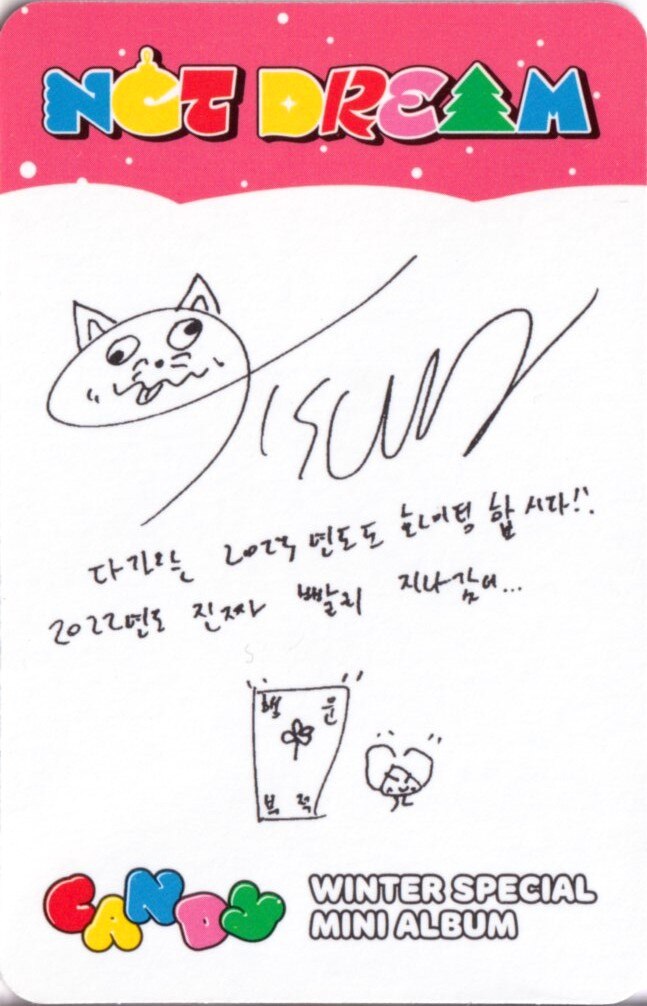 NCT DREAM
JISUNG
다가오는 2023년도도 화이팅 합시다!!
2022년도 진짜 빨리 지나감이...
행 운
부 적
CANDY
WINTER SPECIAL
MINI ALBUM